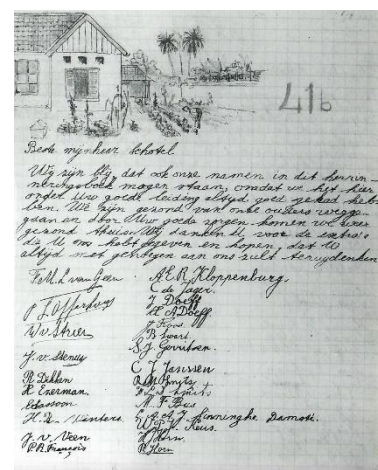 41b
Beste mijnheer Schotel.
Wij zijn blij, dat ook onze namen in dit herin-
neringsboek mogen staan, omdat we het hier
onder Uw goede leiding altijd goed gehad heb-
ben. We zijn gezond van onze ouders wegge-
gaan en door Uw goede zorgen komen we weer
gezond thuis. Wij danken U voor de extra's
die U ons hebt gegeven en hopen, dat U
altijd met genoegen aan ons zult terugdenken
F. M. L. van Geen A. E. R. Kloppenburg.
C de Jager.
J Doeff
P. J. Offerhaus A Doeff
J. Koos
W. v. Strien B Swart
S. J. Gerritsen.
J. v.
C J Janssen
R. Dekken
K. Enerman
M. F. Bus
E Sassoon
H. L. Winters A. A. J. Konninghe Damsté.
Reus.
J. v. Veen Horn
P. B. François R. Horn